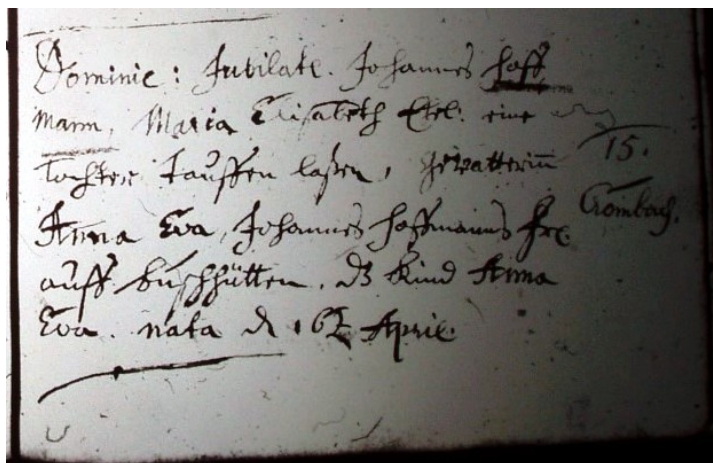 Dominic: Jubilate. Johannes Hoff
mann, Maria Elisabeth Ehel: eine
Tochter Tauffen laßen, Gevatterin
15.
Anna Eva, Johannes Hoffmanns
Crombach.
auff Buschhütten. dz Kind Anna
Eva. nata d 16t April.